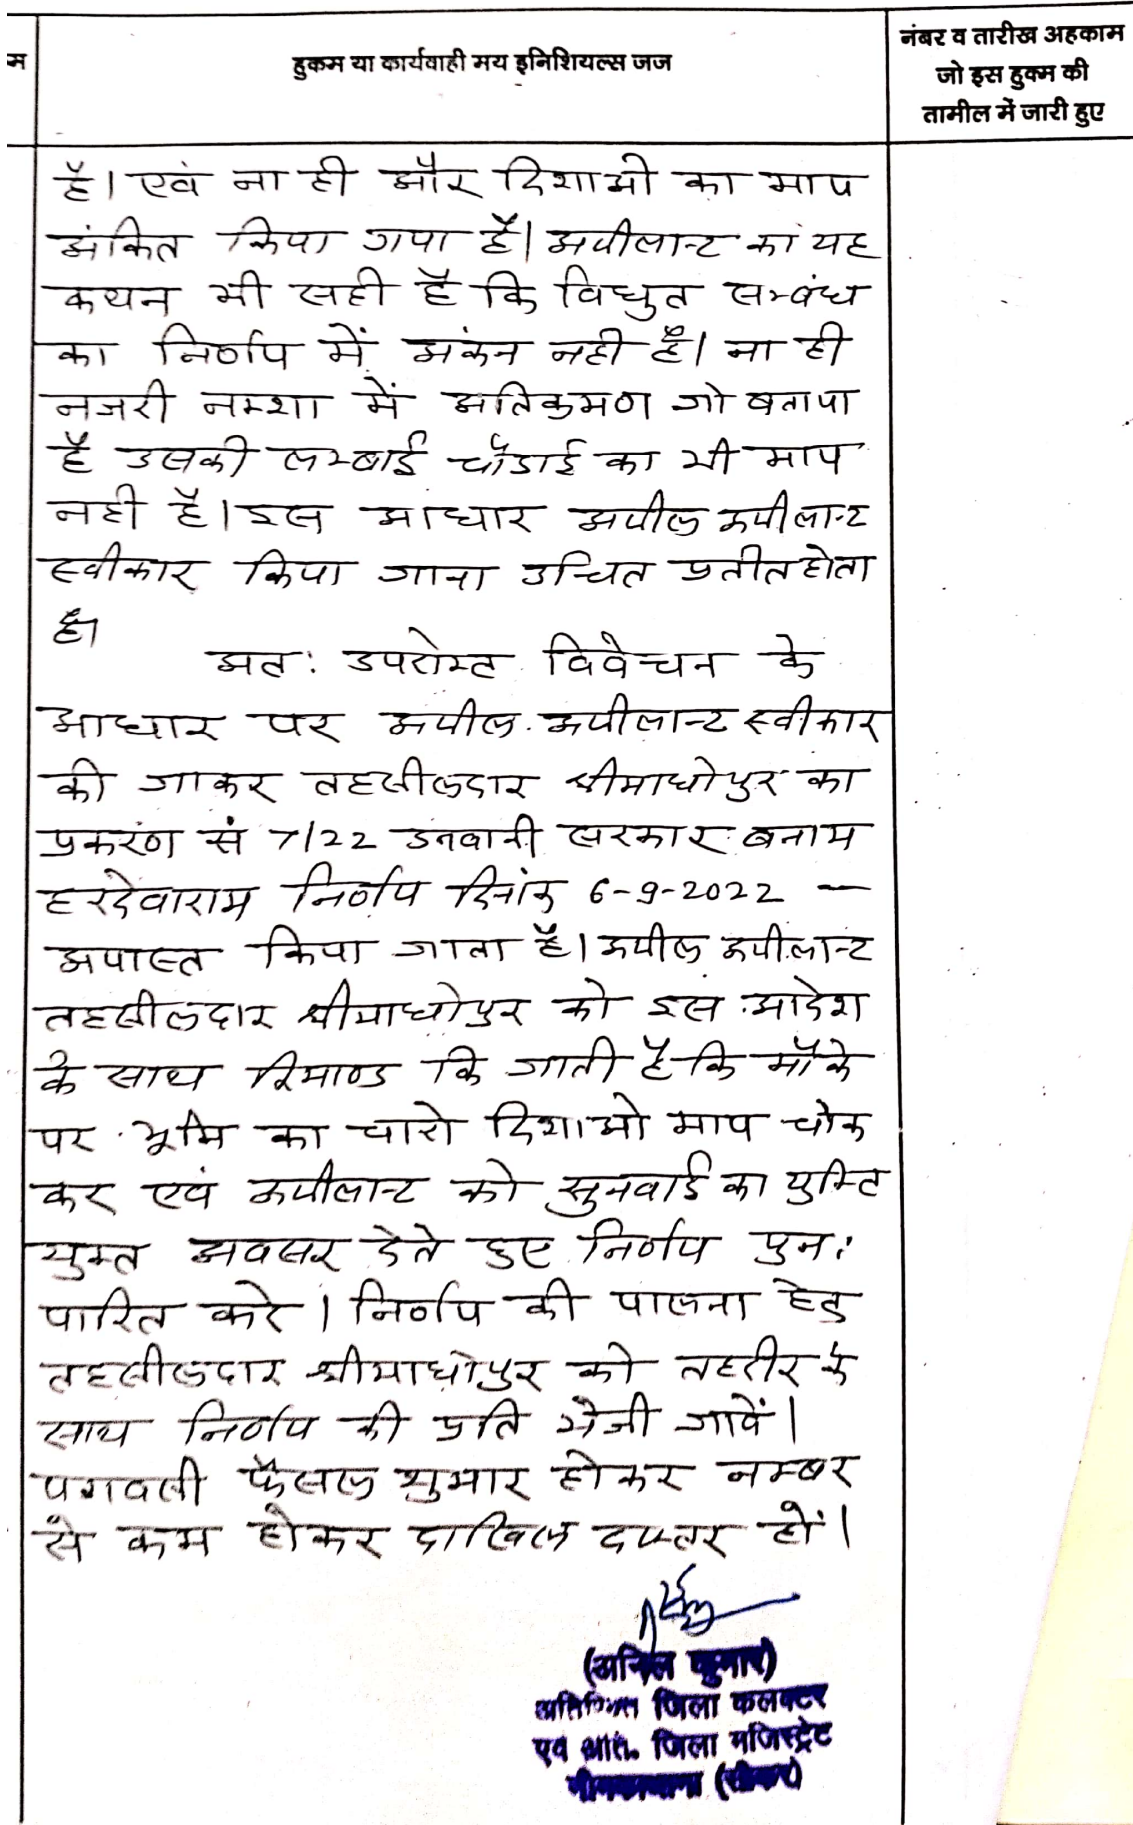 म
हुकम या कार्यवाही मय इनिशियल्स जज
नंबर व तारीख अहकाम
जो इस हुक्म की
तामील में जारी हुए
है। एवं ना ही और दिशाओ का माप
अंकित किया गया है। अपीलान्ट का यह
कथन भी सही है कि विधुत सम्बंध
का निर्णय में अंकन नही है। ना ही
नजरी नक्शा में अतिक्रमण जो बताया
है उसकी लम्बाई चौडाई का भी माप
नही है। इस आधार अपील अपीलान्ट
स्वीकार किया जाना उचित प्रतीत होता
है।
अत: उपरोक्त विवेचन के
आधार पर अपील अपीलान्ट स्वीकार
की जाकर तहसीलदार श्रीमाधोपुर का
प्रकरण सं 7/22 उनवानी सरकार बनाम
हरदेवाराम निर्णय दिनांक 6-9-2022 —
अपास्त किया जाता है। अपील अपीलान्ट
तहसीलदार श्रीमाधोपुर को इस आदेश
के साथ रिमाण्ड कि जाती है कि मौके
पर भूमि का चारो दिशाओ माप चोक
कर एवं अपीलान्ट को सुनवाई का युक्ति
युक्त अवसर देते हुए निर्णय पुन:
पारित करे । निर्णय की पालना हेतु
तहसीलदार श्रीमाधोपुर को तहरीर के
साथ निर्णय की प्रति भेजी जावें ।
पत्रावली फैसल शुमार होकर नम्बर
से कम होकर दाखिल दफ्तर हों ।
(अनिल कुमार)
अतिरिक्त जिला कलक्टर
एवं अति. जिला मजिस्ट्रेट
नीमकाथाना (सीकर)